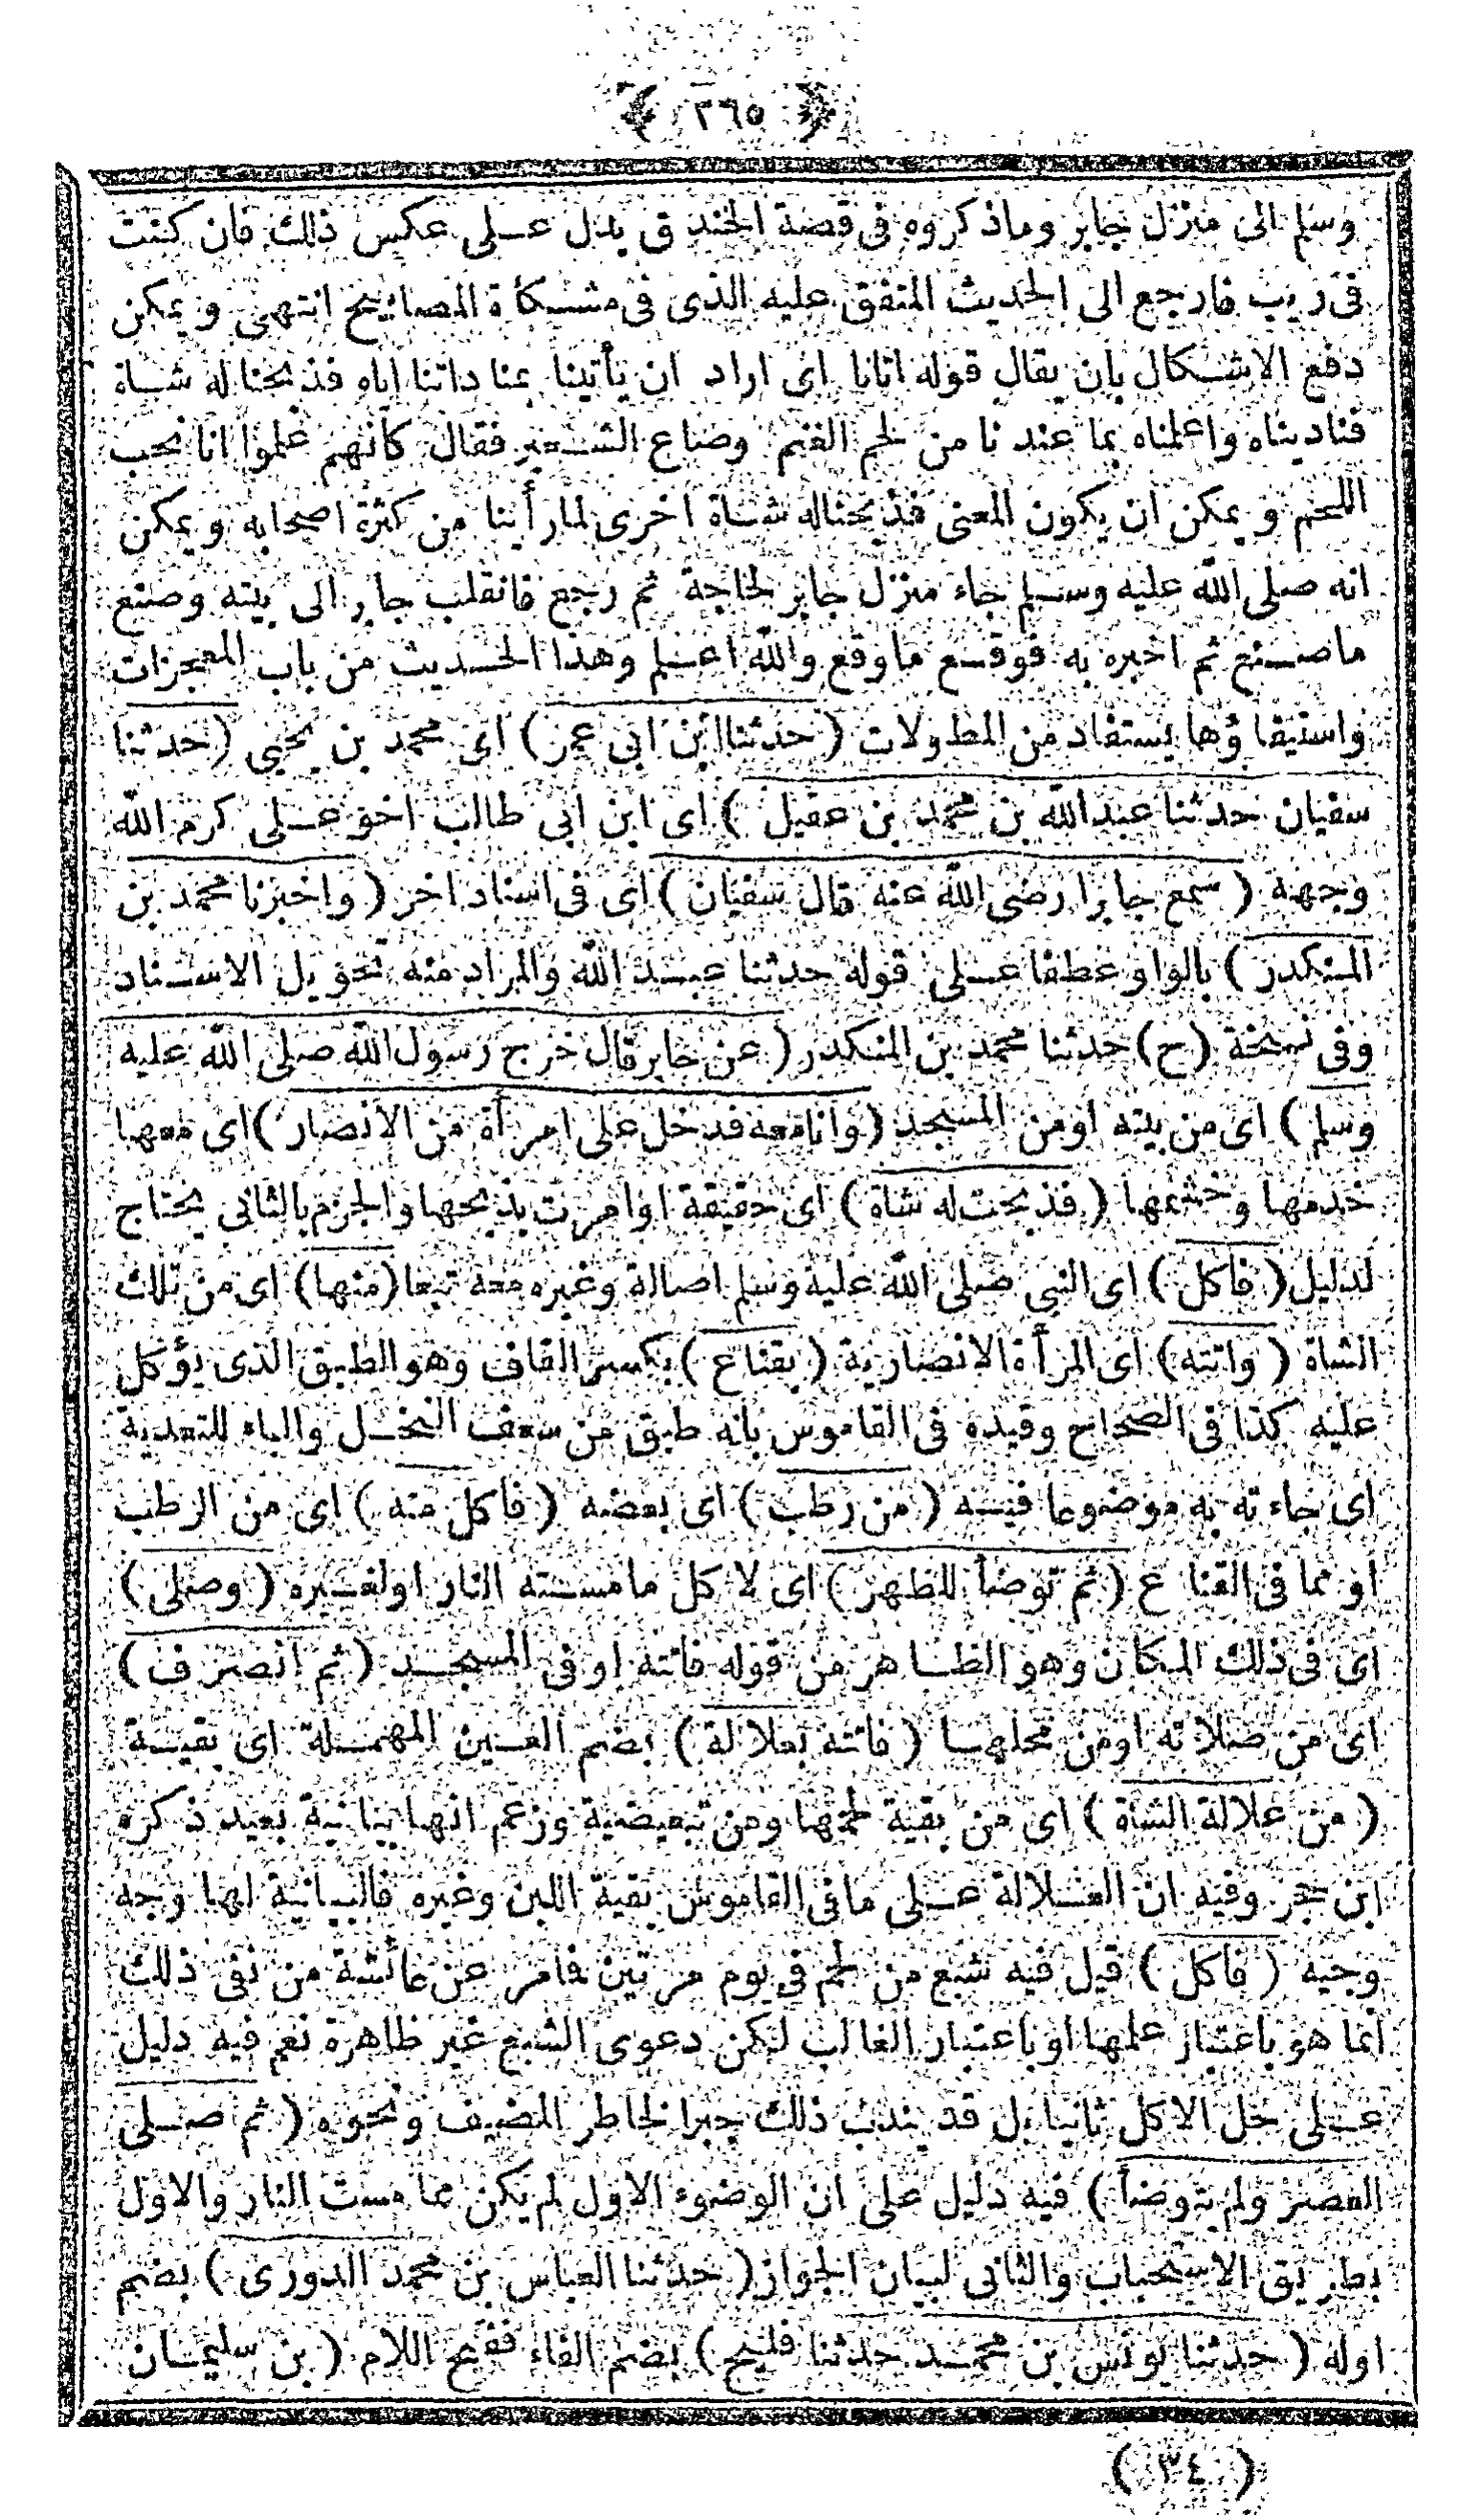 ﴿ ٢٦٥ ﴾
وسلم الى منزل جابر وماذكروه فى قصة الخندق يدل عــلى عكس ذلك فان كنت
فى ريب فارجع الى الحديث المتفق عليه الذى فى مشــكاة المصابيح انتهى ويمكن
دفع الاشــكال بان يقال قوله اتانا اى اراد ان يأتينا بمناداتنا اياه فذبحنا له شــاة
فناديناه واعلمناه بما عندنا من لحم الغنم وصاع الشــعير فقال كأنهم علموا انا نحب
اللحم ويمكن ان يكون المعنى فذبحناله شــاة اخرى لمارأينا من كثرة اصحابه ويمكن
انه صلى الله عليه وسـلم جاء منزل جابر لحاجة ثم رجع فانقلب جابر الى بيته وصنع
ماصـنع ثم اخبره به فوقـع ماوقع والله اعـلم وهذا الحـديث من باب المعجزات
واستيفاؤها يستفاد من المطولات (حدثنا ابن ابى عمر) اى محمد بن يحيى (حدثنا
سفيان حدثنا عبدالله بن محمد بن عقيل) اى ابن ابى طالب اخو عـلى كرم الله
وجهه (سمع جابرا رضى الله عنه قال سفيان) اى فى اسناد اخر (واخبرنا محمد بن
المنكدر) بالواو عطفا عـلى قوله حدثنا عبـد الله والمراد منه تحويل الاسـناد
وفى نسخة (ح) حدثنا محمد بن المنكدر (عن جابر قال خرج رسول الله صلى الله عليه
وسلم) اى من بيته اومن المسجد (وانا معه فدخل على امرأة من الانصار) اى معها
خدمها وحشمها (فذبحت له شاة) اى حقيقة اوامرت بذبحها والجزم بالثانى يحتاج
لدليل (فاكل) اى النبى صلى الله عليه وسلم اصالة وغيره معه تبعا (منها) اى من تلك
الشاة (واتته) اى المرأة الانصارية (بقناع) بكسر القاف وهو الطبق الذى يؤكل
عليه كذا فى الصحاح وقيده فى القاموس بانه طبق من سعف النخـل والباء للتعدية
اى جاءته به موضوعا فيـه (من رطب) اى بعضه (فاكل منه) اى من الرطب
او مما فى القناع (ثم توضأ للظهر) اى لا كل مامسـته النار اولغـيره (وصلى)
اى فى ذلك المكان وهو الظـاهر من قوله فاتته او فى المسجـد (ثم انصرف)
اى من صلاته اومن محلهـا (فاتته بعلالة) بضم العـين المهمـلة اى بقيـة
(من علالة الشاة) اى من بقية لحمها ومن تبعيضية وزعم انها بيانية بعيد ذكره
ابن حجر وفيه ان العـلالة عـلى مافى القاموس بقية اللبن وغيره فالبيانية لها وجه
وجيه (فاكل) قيل فيه شبع من لحم فى يوم مرتين فامر عن عائشة من نفى ذلك
انما هو باعتبار علمها اوباعتبار الغالب لكن دعوى الشبع غير ظاهرة نعم فيه دليل
عـلى حل الاكل ثانيا بل قد يندب ذلك جبرا لخاطر المضيف ونحوه (ثم صـلى
العصر ولم يتوضأ) فيه دليل على ان الوضوء الاول لم يكن مما مست النار والاول
بطريق الاستحباب والثانى لبيان الجواز (حدثنا العباس بن محمد الدورى) بضم
اوله (حدثنا يونس بن محمـد حدثنا فليح) بضم الفاء ففتح اللام (بن سليمـان
(٣٤)